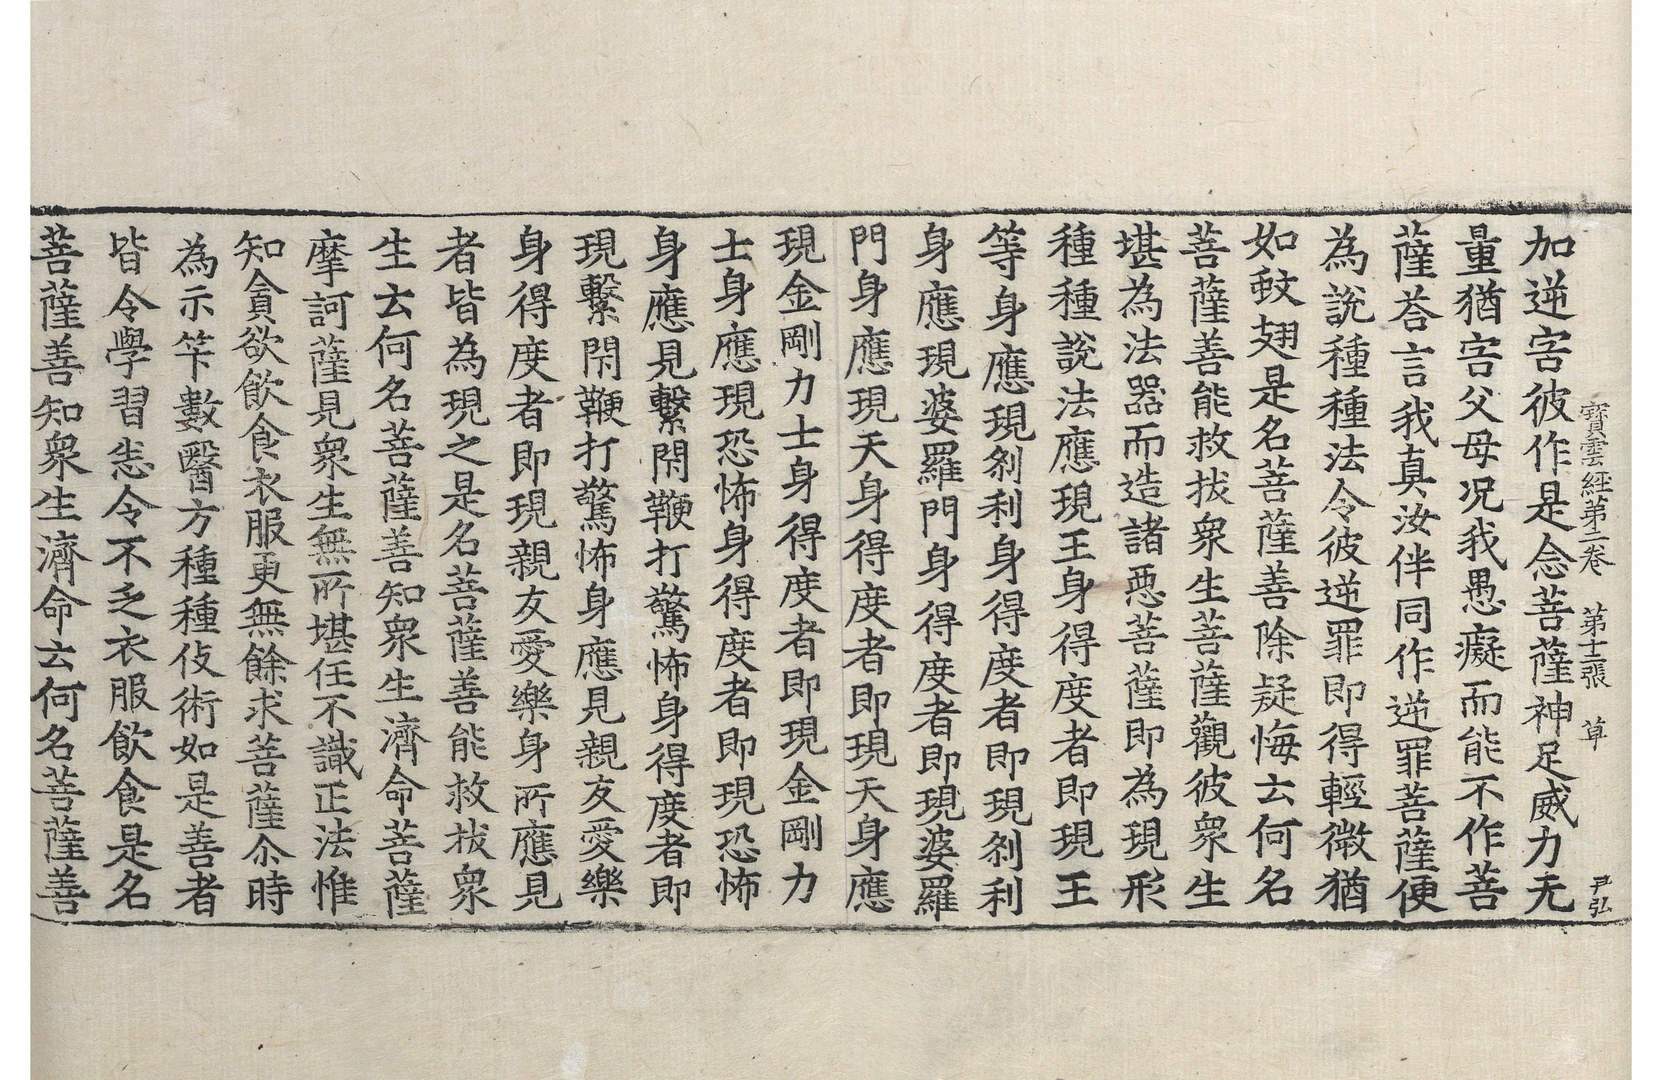 寳雲經第二卷 第十二張 草 尹弘
加逆害彼作是念菩薩神足威力无
量猶害父母况我愚癡而能不作菩
薩荅言我真汝伴同作逆罪菩薩便
為說種種法令彼逆罪即得輕微猶
如蚊翅是名菩薩善除疑悔云何名
菩薩善能救拔衆生菩薩觀彼衆生
堪為法器而造諸惡菩薩即為現形
種種說法應現王身得度者即現王
等身應現刹利身得度者即現刹利
身應現婆羅門身得度者即現婆羅
門身應現天身得度者即現天身應
現金剛力士身得度者即現金剛力
士身應現恐怖身得度者即現恐怖
身應見繫閇鞭打驚怖身得度者即
現繫閇鞭打驚怖身應見親友愛樂
身得度者即現親友愛樂身所應見
者皆為現之是名菩薩善能救拔衆
生云何名菩薩善知衆生濟命菩薩
摩訶薩見衆生無所堪任不識正法惟
知貪欲飲食衣服更無餘求菩薩尒時
為示笇數醫方種種伎術如是善者
皆令學習恙令不乏衣服飲食是名
菩薩善知衆生濟命云何名菩薩善